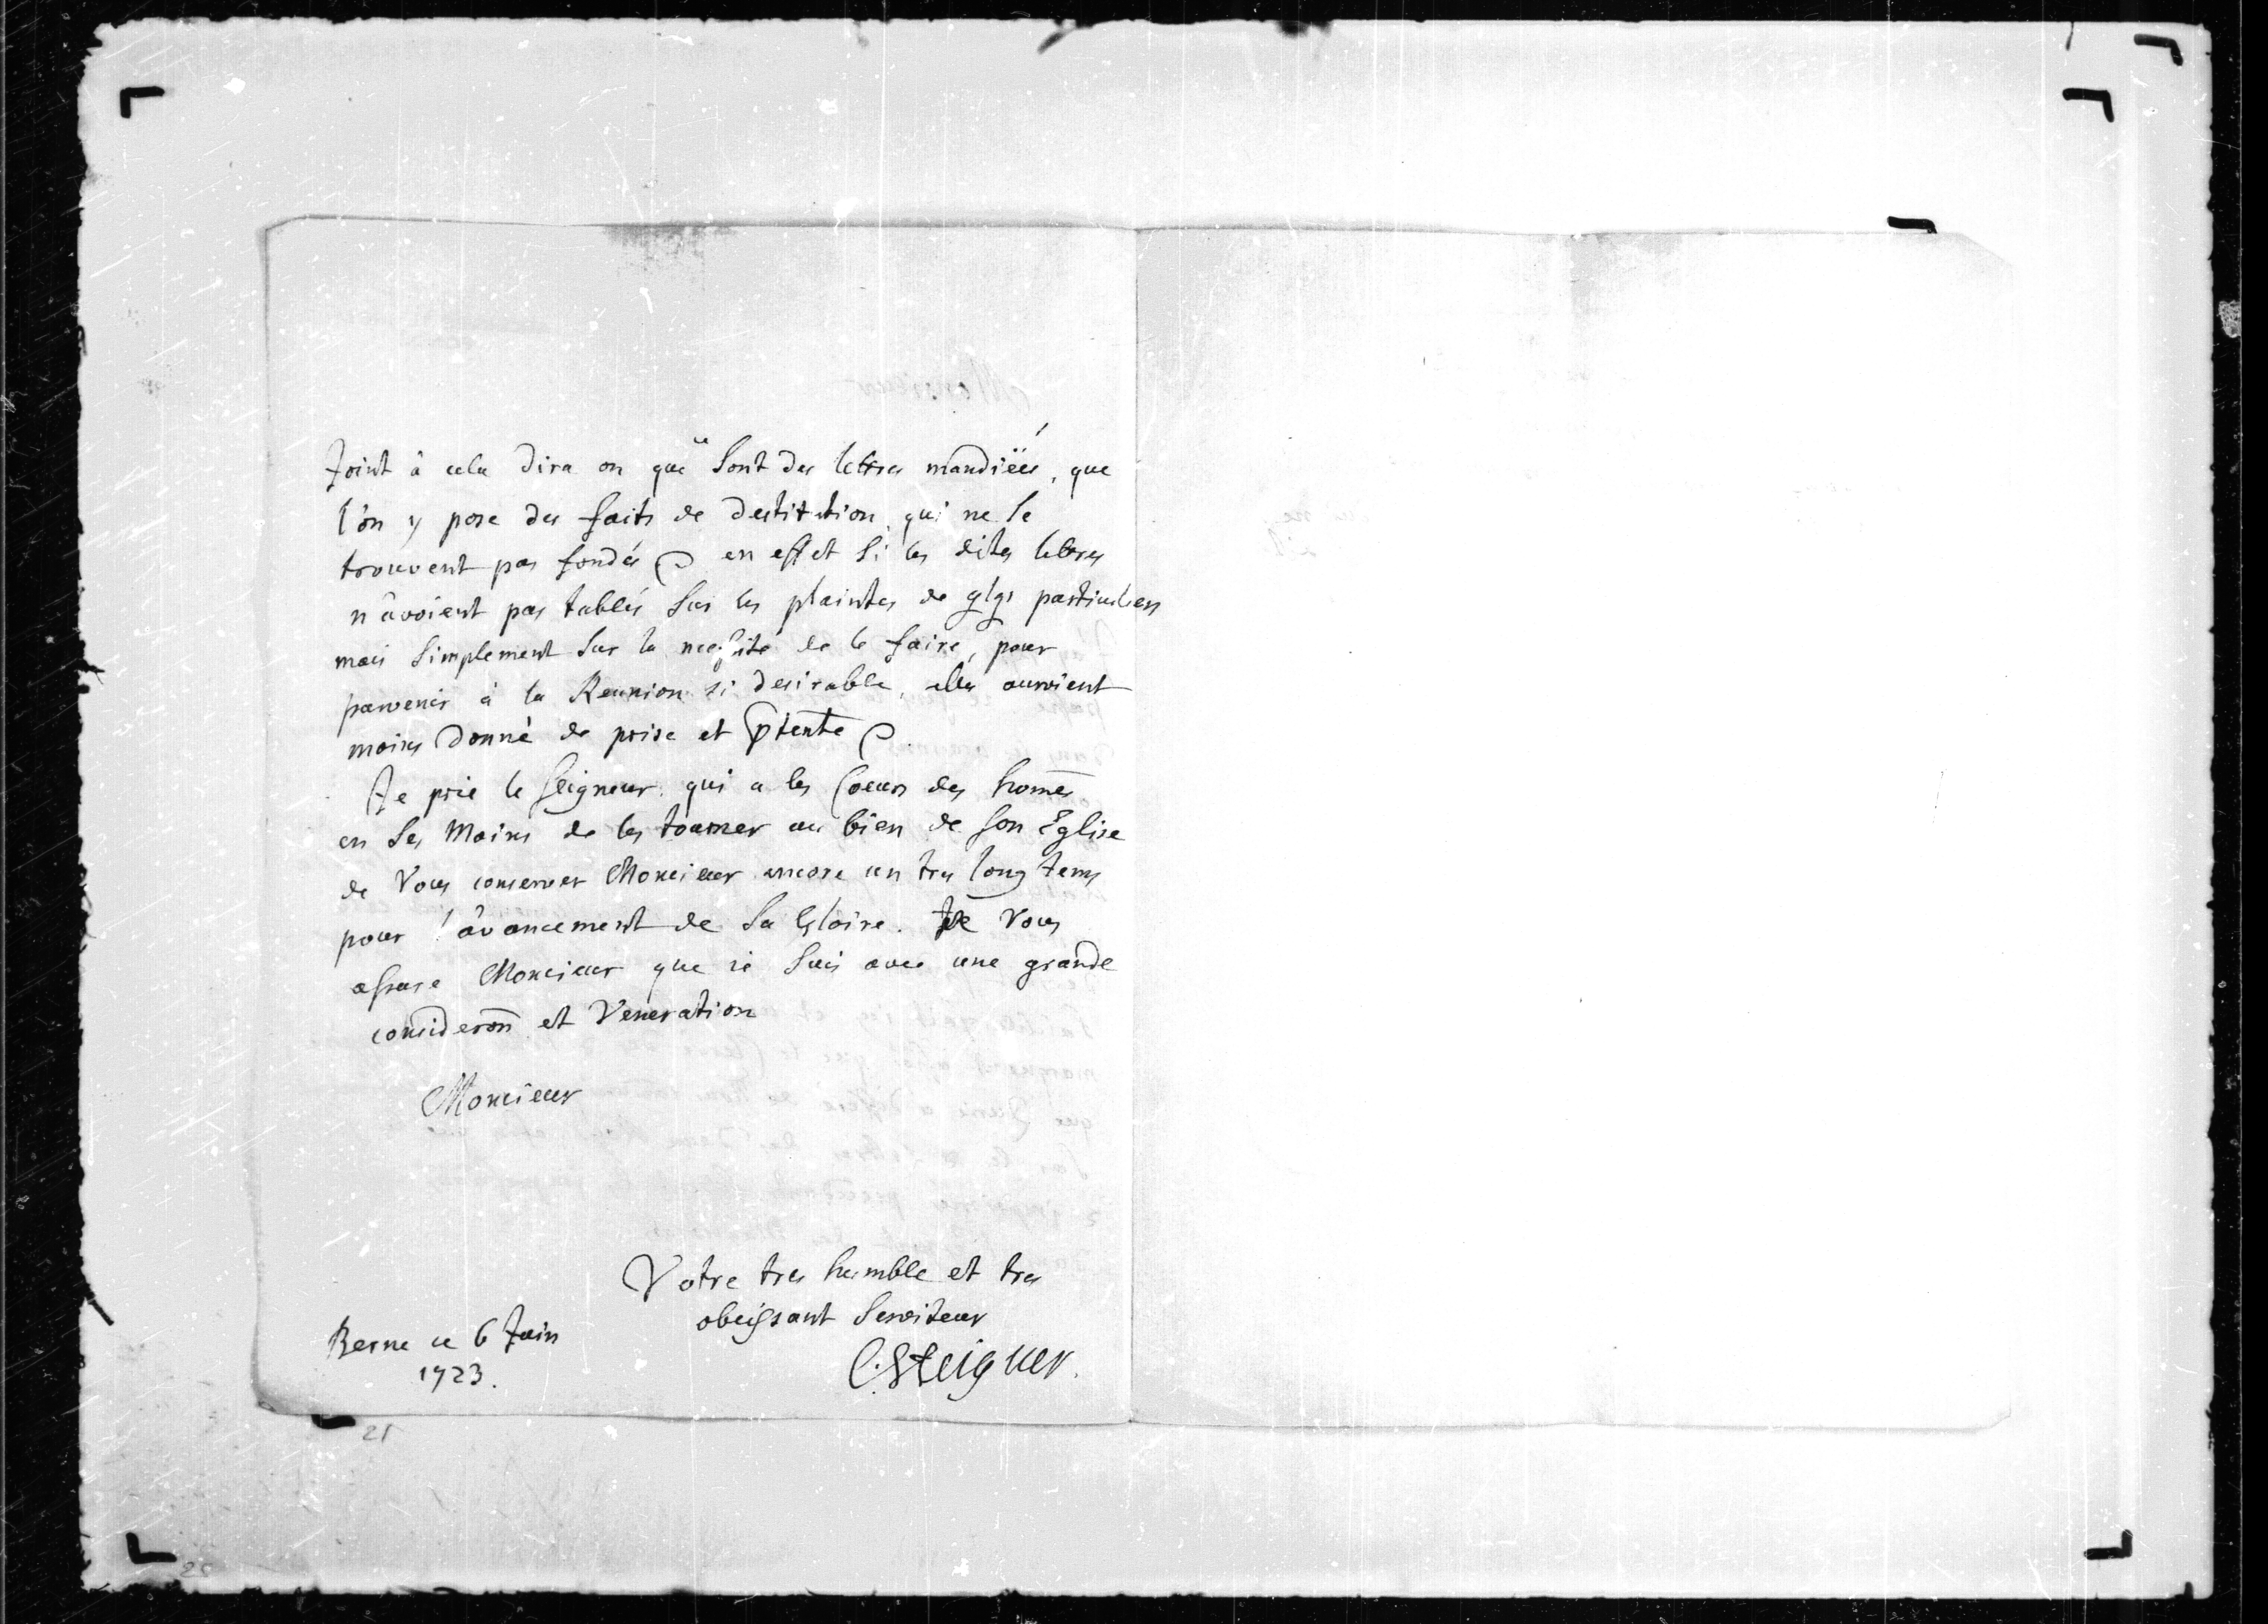 Joint à cela dira on que sont des lettres mandiëes, que
l'on y pose des faits de destitution qui ne se
trouvent pas fondés en effet si les dites lettres
n'avoient pas tablés sur les plaintes de qlqs particuliers
mais simplement sur la necessité de le faire, pour
parvenir à la Reunion si desirable, elles auroient
moins donné de prise et
Je prie le Seigneur qui a les Coeurs des homẽs
en ses Mains de les tourner au bien de son Eglise
de Vous conserver Monsieur encore un tres long tems
pour l'avancement de sa Gloire. Je Vous
assure Monsieur que ie suis avec une grande
consideroñ et Veneration
Monsieur
Votre tres humble et tres
obeissant serviteur
Berne ce 6 Juin
1723.
C. Steiguer.
21